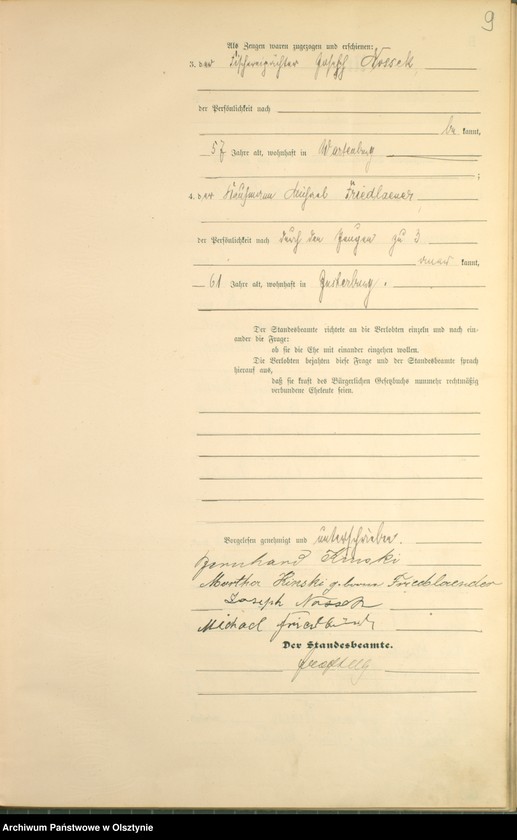 9
Als Zeugen waren zugezogen und erschienen:
3. der Fischereipächter Joseph Nosseck
der Persönlichkeit nach
be kannt,
57 Jahre alt, wohnhaft in Wartenburg
;
4. der Kaufmann Michael Friedlaender
der Persönlichkeit nach durch den Zeugen zu 3
kannt,
61 Jahre alt, wohnhaft in Insterburg.
Der Standesbeamte richtete an die Verlobten einzeln und nach ein-
ander die Frage:
ob sie die Ehe mit einander eingehen wollen.
Die Verlobten bejahten diese Frage und der Standesbeamte sprach
hierauf aus,
daß sie kraft des Bürgerlichen Gesetzbuchs nunmehr rechtmäßig
verbundene Eheleute seien.
Vorgelesen genehmigt und unterschrieben.
Bernhard Kinski
Martha Kinski geborene Friedlaender
Joseph Nosseck
Michael Friedländer
Der Standesbeamte.
Archiwum Państwowe w Olsztynie